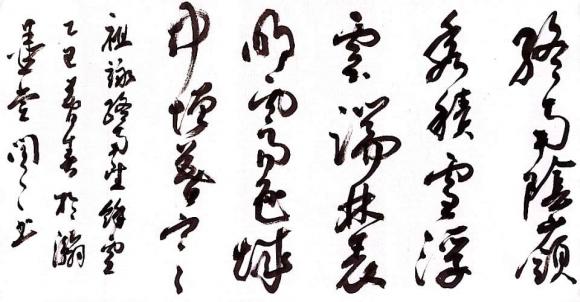 終南陰嶺
秀積雪浮
雲端林表
明霽色城
中增暮寒
祖詠終南望餘雪
乙巳暮春於瀚
墨堂 書